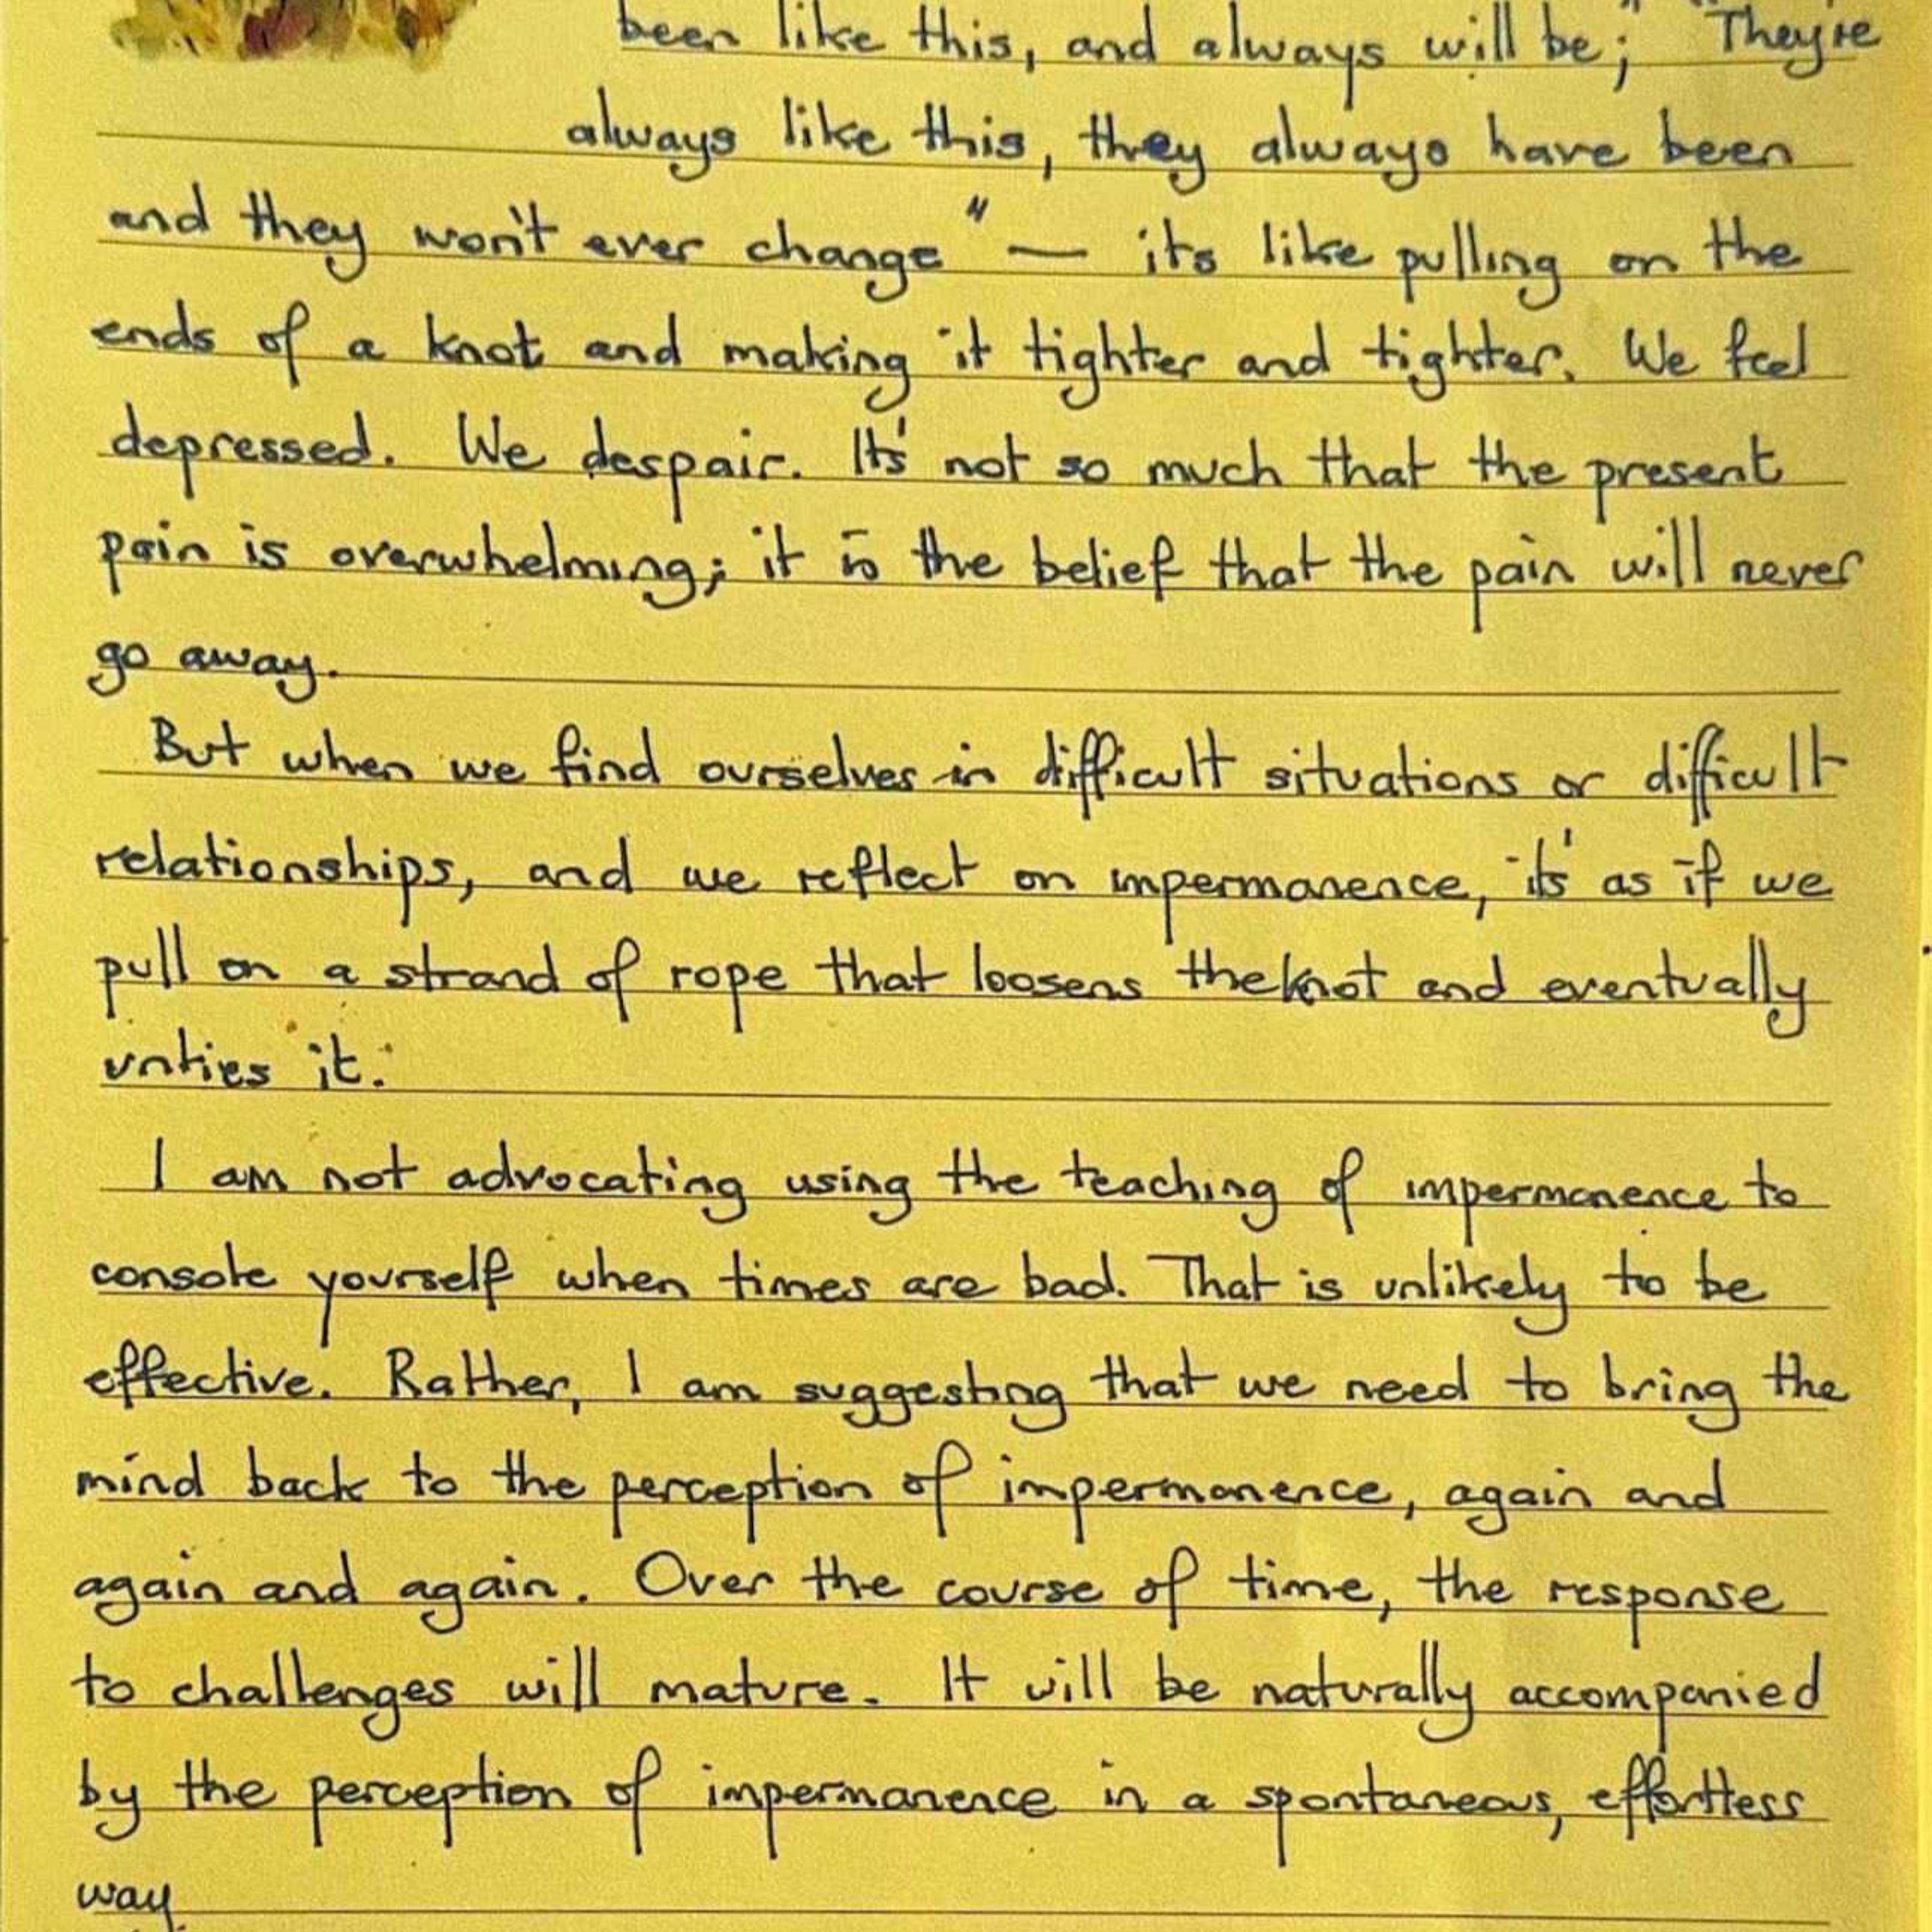 been like this, and always will be;" "They're
always like this, they always have been
and they won't ever change" — its like pulling on the
ends of a knot and making it tighter and tighter. We feel
depressed. We despair. It's not so much that the present
pain is overwhelming; it is the belief that the pain will never
go away.
But when we find ourselves in difficult situations or difficult
relationships, and we reflect on impermanence, it's as if we
pull on a strand of rope that loosens the knot and eventually
unties it.
I am not advocating using the teaching of impermanence to
console yourself when times are bad. That is unlikely to be
effective. Rather, I am suggesting that we need to bring the
mind back to the perception of impermanence, again and
again and again. Over the course of time, the response
to challenges will mature. It will be naturally accompanied
by the perception of impermanence in a spontaneous, effortless
way